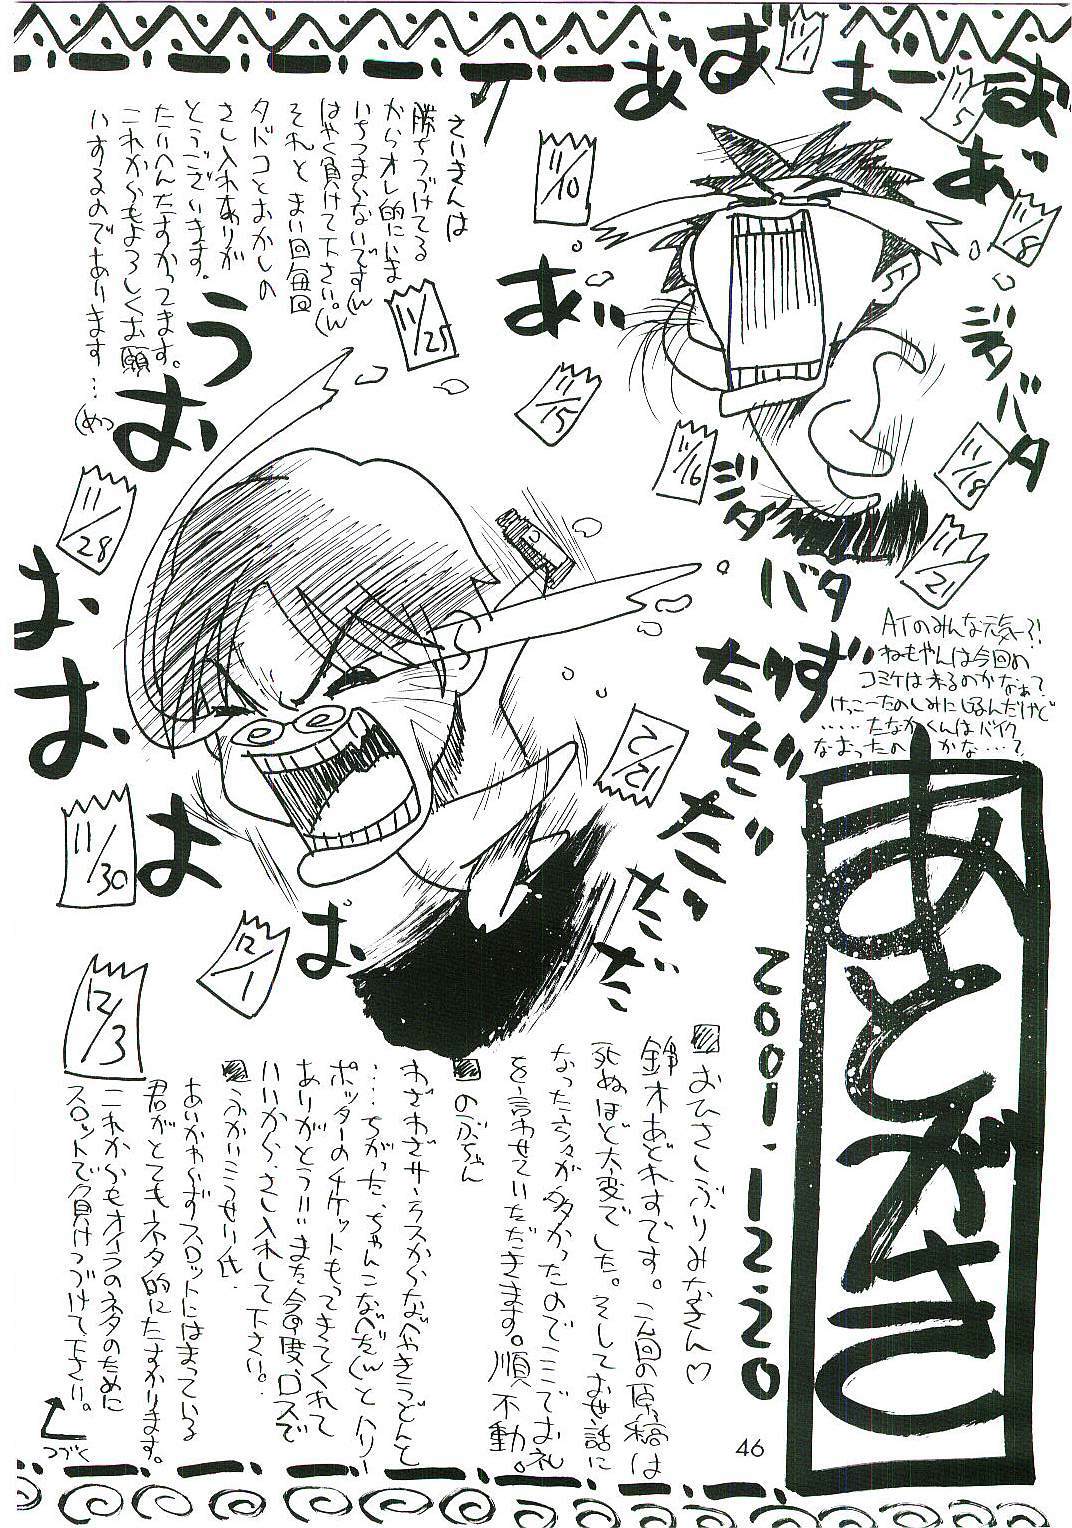 あとがき
2001.12.20
ATのみんな元気ー?!
ねもやんは今回の
コミケは来るのかなぁて
けっこーたのしみにしてるんだけど
‥‥‥たなかくんはバイク
なおったの かな‥‥?
おひさしぶりみなさん♡
鈴木あどれすです。今回の原稿は
死ぬほど大変でした。そしてお世話に
なった方々が多かったのでここでお礼
を言わせていただきます。順不動。
のぶちゃん
わざわざサーラスからなべやきうどんと
‥‥ちがった、ちゃんこなべだ(んとハリー
ポッターのチケットもってきてくれて
ありがとうっいまた今度、ロスで
いいから、さし入れして下さい。
ふかいこうせい氏
あいかわらずスロットにはまっている
君がとてもネタ的にたすかります。
これからもオイラのネタのために
スロットで負けつづけて下さい。
つづく
さいきんは
勝ちつづけてる
からオレ的にはま
いちつまらないです(ん
はやく負けて下さい。(ん
それと まい回毎回
タドコとおかしの
さし入れありが
とうございます。
たいへんたすかってます。
これからもよろしくお願
いするのであります‥‥(めっ
あ゛ば
ま゛ー
お゛
あ゛
あ゛
ジタバタ
ジタ
バタ
うお
おお
よ
ぱ
ただだ
だだ
ただだ
11/1
11/5
11/8
11/10
11/15
11/16
11/18
11/21
11/25
11/28
11/30
12/1
12/2
12/3
46